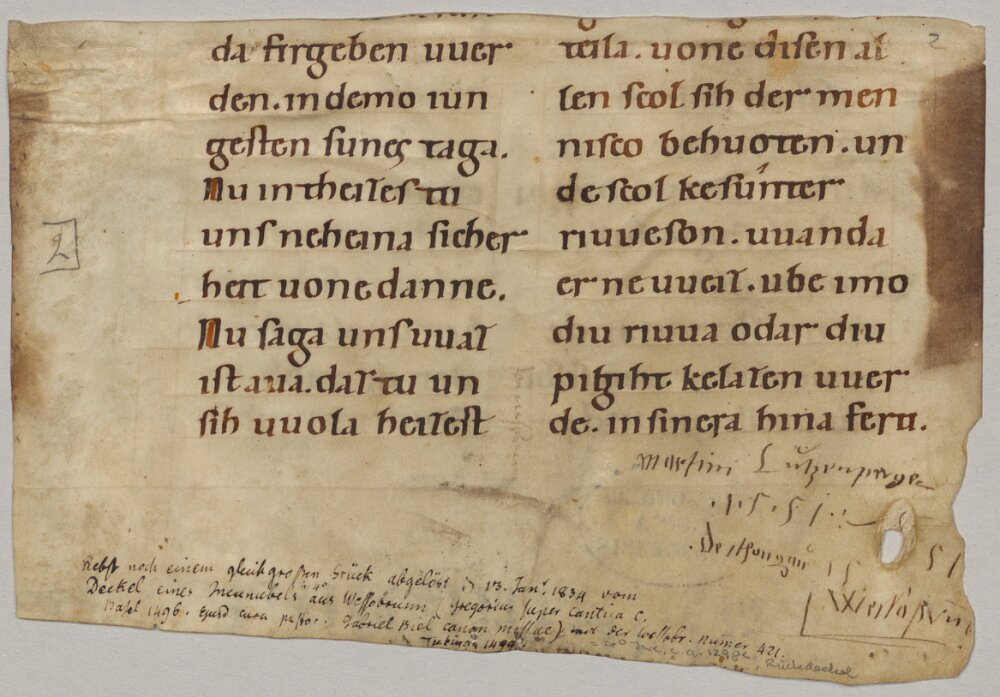 da firgeben uuer
den. in demo iun
gesten sunes taga.
Nu intheizes tu
uns neheina sicher
heit uone danne.
Nu saga uns uuaz
ist aua. daz tu un
sih uuola heizest
teila. uone disen al
len scol sih der men
nisco behuoten. un
de scol kesunter
riuueson. uuanda
er ne uueiz. ube imo
diu riuua odar diu
pigiht kelazen uuer
de. in sinera hina ferti.
2
2
Martini Lutzenperger
1551
51
15
Nebst noch einem gleichgroßen Stück abgelöst d. 13. Jan. 1834 vom
Deckel eines Incunabels aus Wessobrunn (Gregorius super Cantica C.
Basel 1496. Ejusd cura pastor. Gabriel Biel canon missae) mit der Wessobr. numer 421.
Tubing. 1499.
Rückdeckel